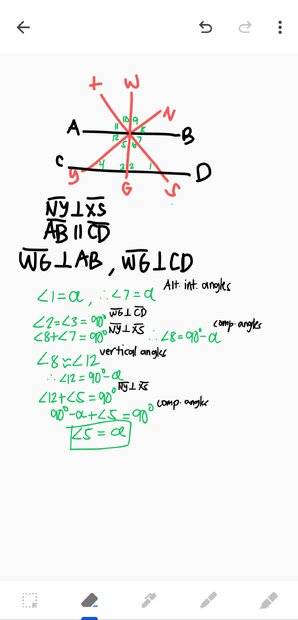 X W N
A 11 10 9 8 B
12 5 6 7
C Y 4 3 2 1 D
G S
NY ⊥ XS
AB || CD
WG ⊥ AB, WG ⊥ CD
∠1 = α, ∴ ∠7 = α Alt. int. angles
∠2 = ∠3 = 90° WG ⊥ CD
∠8 + ∠7 = 90° NY ⊥ XS ∴ ∠8 = 90° - α comp. angles
∠8 ≅ ∠12 vertical angles
∴ ∠12 = 90° - α
∠12 + ∠5 = 90° NY ⊥ XS
90° - α + ∠5 = 90° comp. angles
∠5 = α